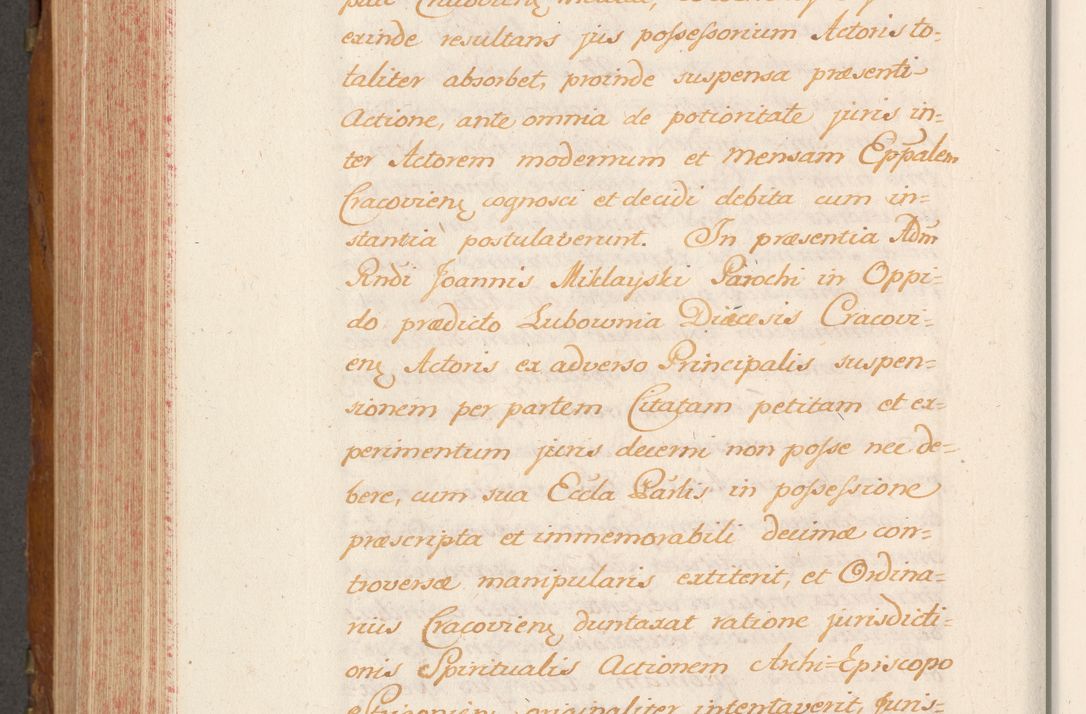 exinde resultans jus possessorium Actoris to=
taliter absorbet, proinde suspensa præsenti
Actione, ante omnia de potioritate juris in=
ter Actorem modernum et Mensam Eppalem
Cracovien̄ cognosci et decidi debita cum in=
stantia postulaverunt. In præsentia Adm̄
Rndi Joannis Miklayski Parochi in Oppi=
do prædicto Lubownia Diæcesis Cracovi=
en̄ Actoris ex adverso Principalis suspen=
sionem per partem Citatam petitam et ex=
perimentum juris decerni non posse nec de=
bere, cum sua Eccla Parlis in possessione
præscripta et immemorabili decimæ con=
troversæ manipularis extiterit, et Ordina=
rius Cracovien̄ duntaxat ratione jurisdicti=
onis Spiritualis Actionem Archi=Episcopo
originaliter intentaverit, Juris=